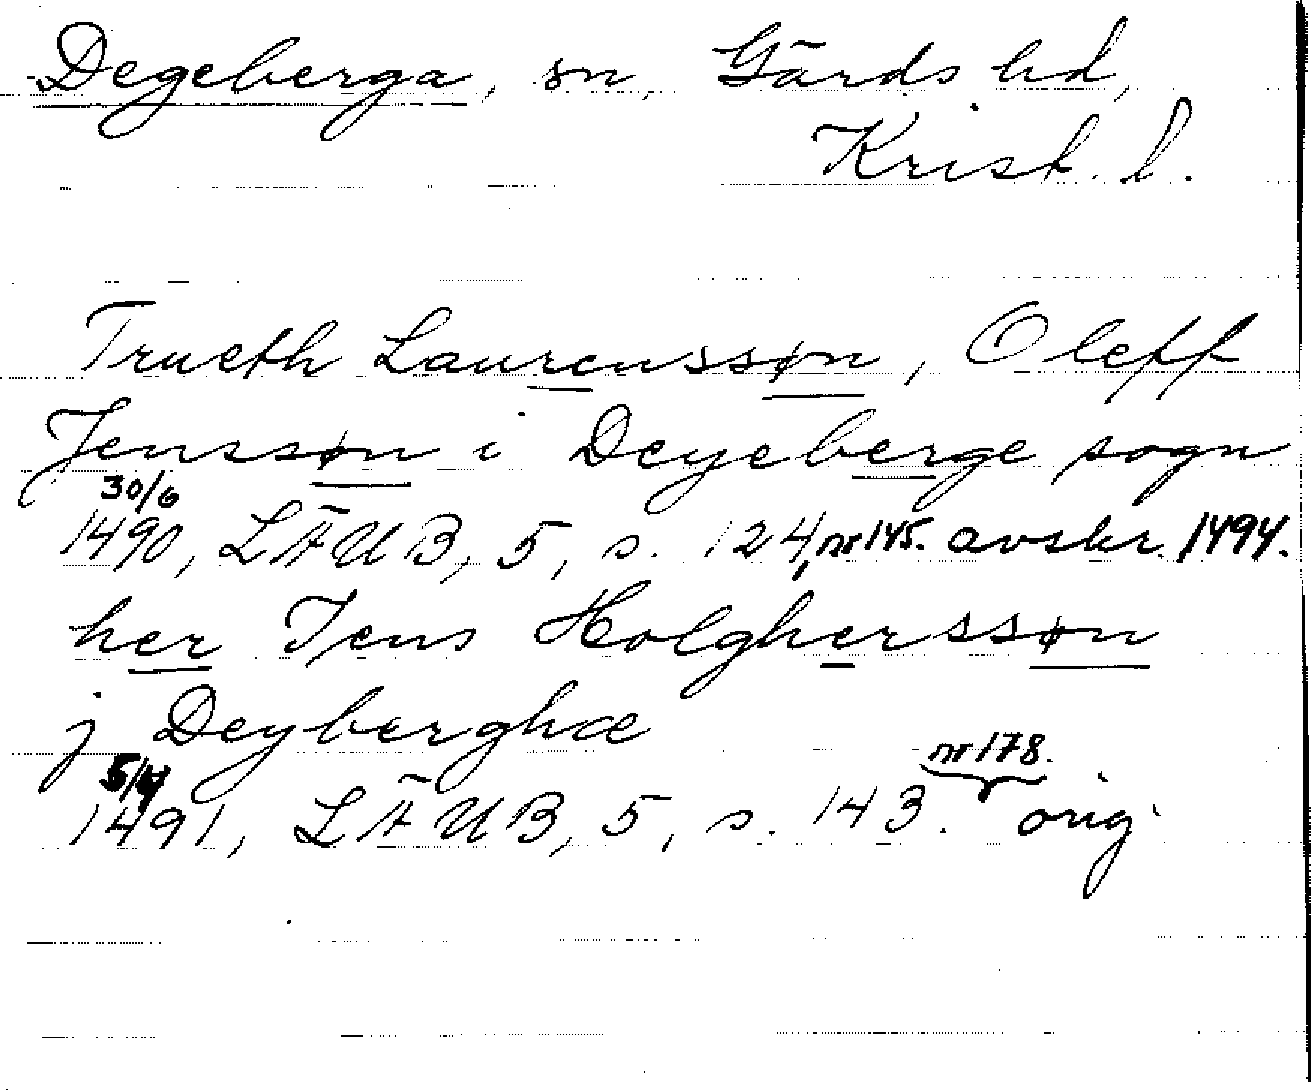 Degeberga, sn, Gärds hd,
Krist. l.
Trueth Laurenssøn, Oleff
Jenssøn i Deyeberge sogn
30/6
1490, LÄUB, 5, s. 124, nr 145. avskr. 1494.
her Jens Holgherssøn
j Deyberghæ
nr 178.
5/4
1491, LÄUB, 5, s. 143. orig.